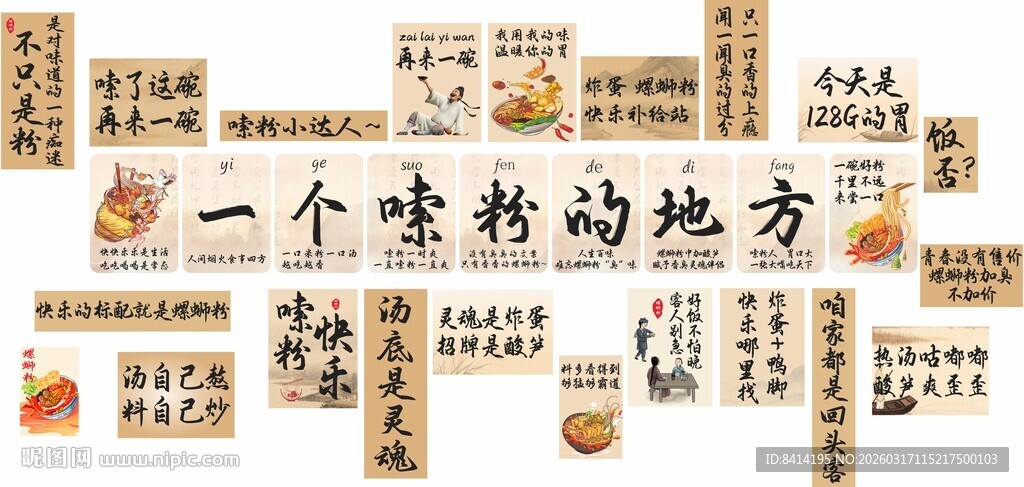 是对味道的一种痴迷
不只是粉
嗦了这碗
再来一碗
嗦粉小达人~
zai lai yi wan
再来一碗
我用我的味
温暖你的胃
炸蛋 螺蛳粉
快乐补给站
只一口香的上瘾
闻一闻臭的过分
今天是
128G的胃
饭
否?
快快乐乐是生活
吃吃喝喝是常态
yi
一
人间烟火食事四方
ge
个
一口米粉一口汤
越吃越香
suo
嗦
嗦粉一时爽
一直嗦粉一直爽
fen
粉
没有臭臭的文案
只有香香的螺蛳粉~
de
的
人生百味
难忘螺蛳粉“臭”味
di
地
螺蛳粉中加酸笋
赋予香臭灵魂伴侣
fang
方
嗦粉人 胃口大
一筷夫嘴吃天下
一碗好粉
千里不远
来尝一口
青春没有售价
螺蛳粉加臭
不加价
快乐的标配就是螺蛳粉
螺蛳粉
汤自己熬
料自己炒
快乐
嗦粉
汤底是灵魂
灵魂是炸蛋
招牌是酸笋
料多看得到
够猛够霸道
好饭不怕晚
客人别急
炸蛋+鸭脚
快乐哪里找
咱家都是回头客
热汤咕嘟嘟
酸笋爽歪歪
昵图网 www.nipic.com
ID:8414195-NO:20260317115217500103